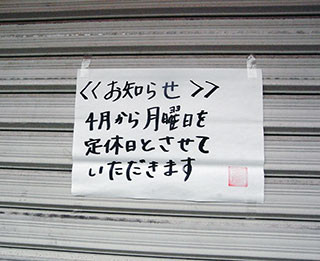 <<お知らせ>>
4月から月曜日を
定休日とさせて
いただきます